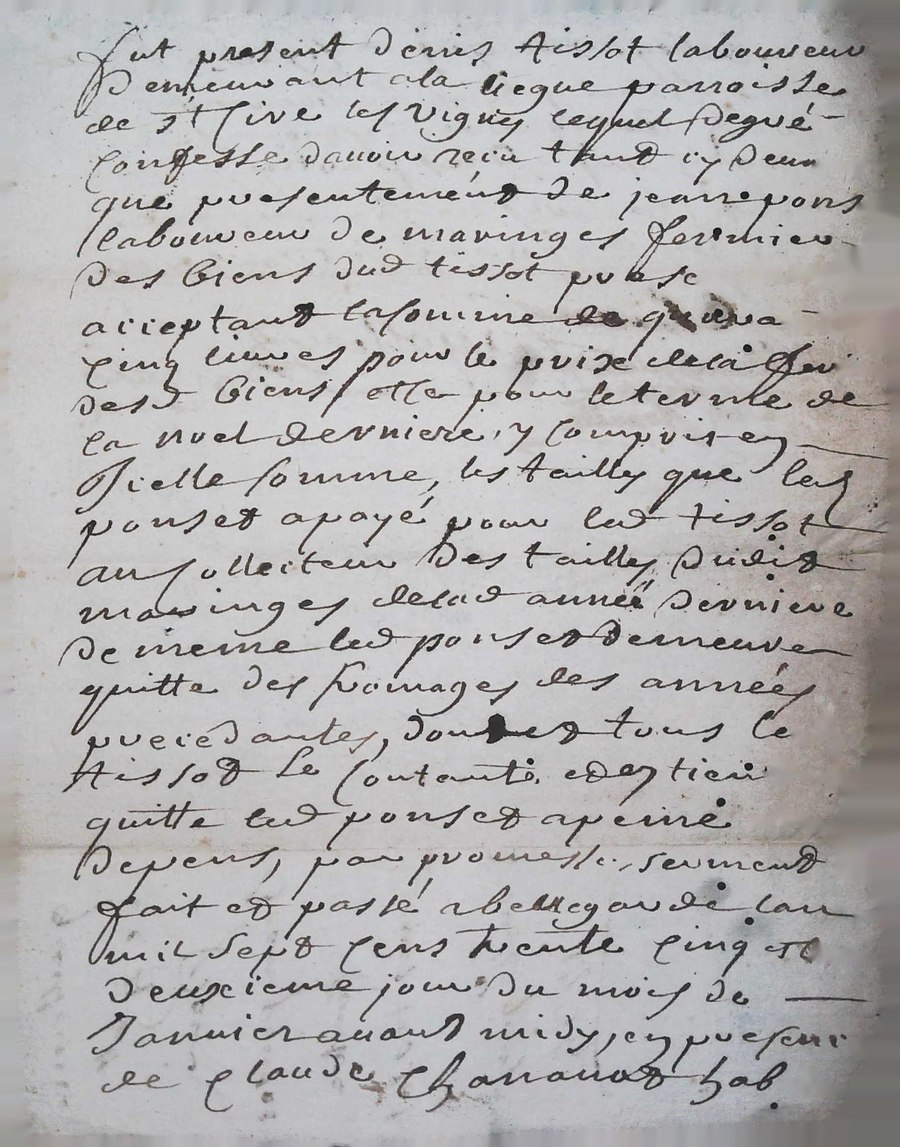 fut present denis tissot laboureur
demeurant a la liegue parroisse
de st Cire les vignes lequel de gré
confesse davoir recu tant cy devt
que presentement de jean pons
laboureur de maringes fermier
des biens dud tissot prest
acceptant la somme de quara
cinq livres pour le prix de la fer
desd biens / et ce pour le terme de
la noel derniere, y compris en
Jcelle somme, les tailles que led
ponset a payé pour led tissot
au collecteur des tailles dudit
maringes de lad anneé derniere
de meme led ponset demeure
quitte des fromages des années
precedantes, dont et tous le
tissot se contante. et en tien
quitte led ponset a peine
depens, par promesse, serment
fait et passé a bellegarde lan
mil sept cens trente cinq et
deuxieme jour du mois de
Janvier avant midy, en presence
de claude Chanavat hab